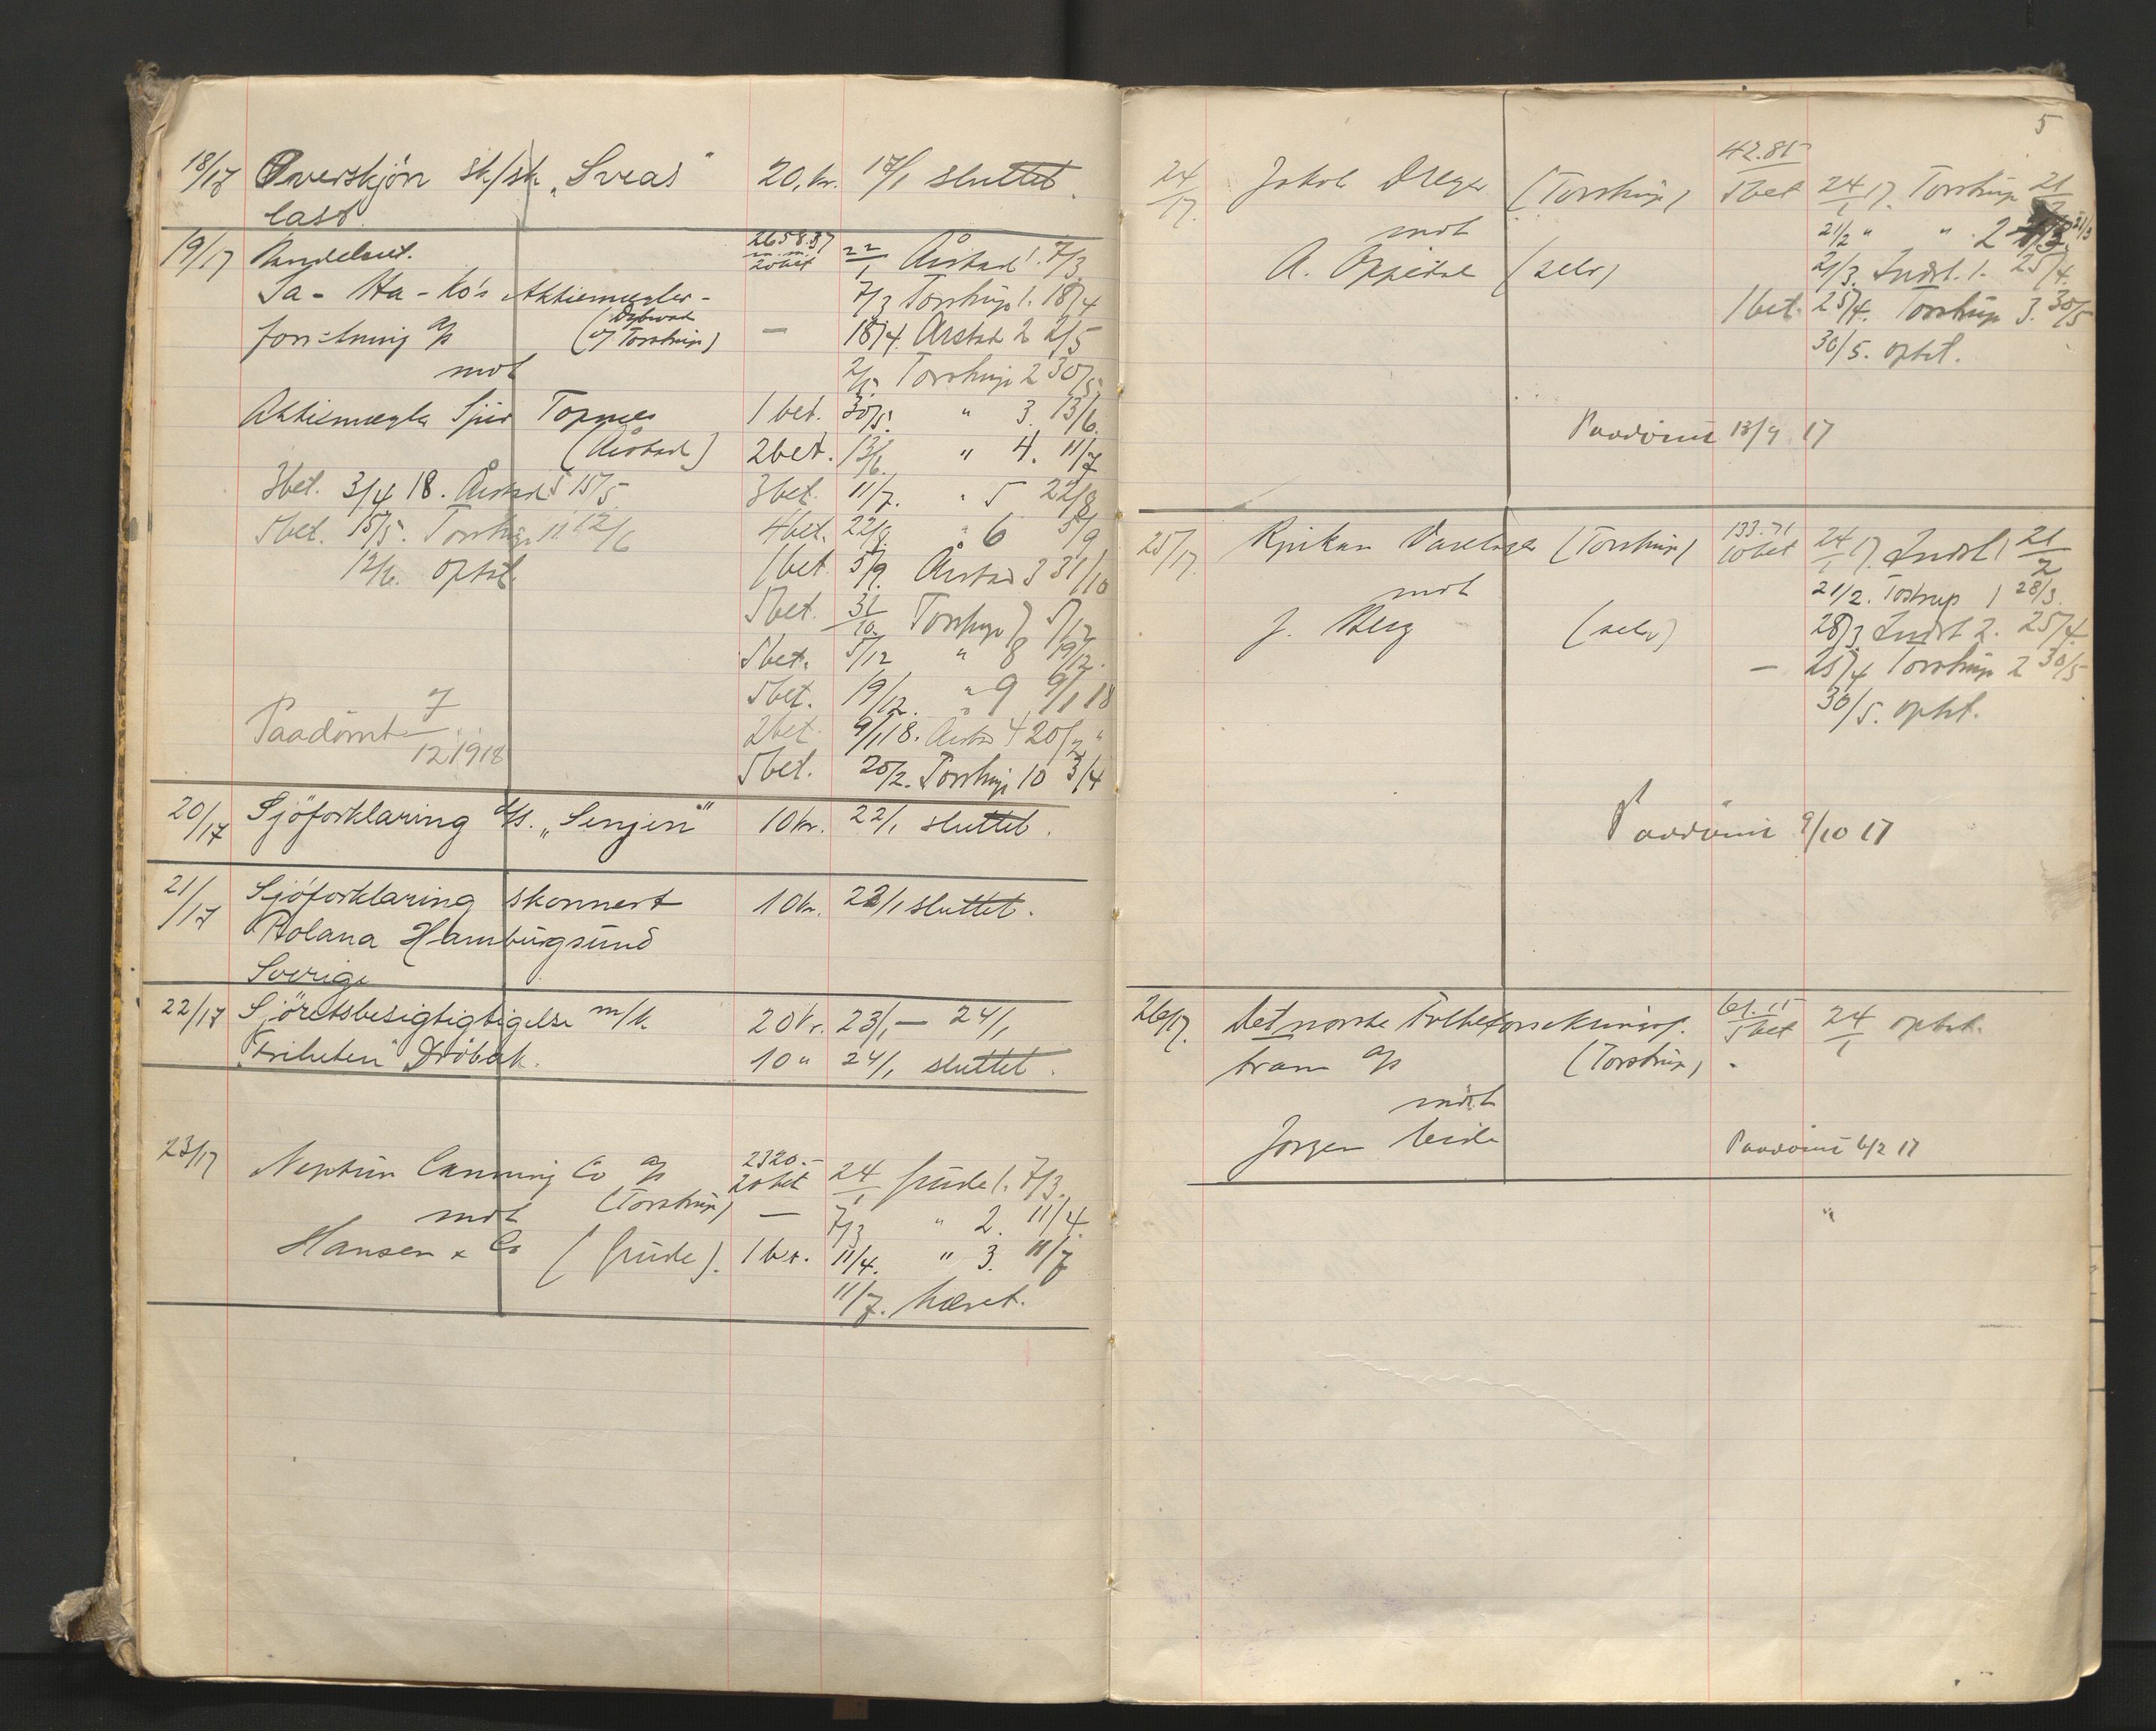 18/17 Overskjön sk/sk „Sveas" 20, kr. 17/1 sluttet.
last.
19/17 2658.37 22/1 Årstad 1. 7/3
20 bet
Ta - Ha - Ko's Aktiemægler- 7/3 Torstrup 1. 18/4
forretning a/s (Dybwad — 18/4. Årstad 2 2/5
v/ Torstrup)
mot 2/5 Torstrup 2 30/5
Aktiemægler Topnæs 1 bet. 30/5. " 3. 13/6.
(Årstad) 2 bet. 13/6. " 4. 11/7
3 bet. 3/4 18. Årstad 5 15/5. 3 bet. 11/7. " 5 22/8
5 bet. 15/5. Torstrup 11 12/6 4 bet. 22/8. " 6 5/9
12/6. optat. 1 bet 5/9. Årstad 3 31/10
5 bet. 31/10. Torstrup 7 5/12
5 bet. 5/12 " 8 19/12.
5 bet. 19/12. " 9 9/1 18
Paadömt 7/12 1918 2 bet. 9/1 18. Årstad 4 20/2 "
5 bet. 20/2. Torstrup 10 3/4
20/17 Sjöforklaring d/s. „Senjen" 10 kr. 22/1 sluttet.
21/17 Sjöforklaring skonnert 10 kr. 22/1 sluttet.
Rolana Hamburgsund
Sverige
22/17 Sjöretsbesigtigtigelse m/k. 20 kr. 23/1 — 24/1
"Friheten" Dröbak. 10 " 24/1 sluttet.
23/17 Neptun Canning Co a/s 2320.- 24/1 Grude 1. 7/3.
20 bet
mot (Torstrup) — 7/3 " 2. 11/4.
Hansen & Co (Grude). 1 bet. 11/4. " 3. 11/7
11/7. hævet.
5
42.85
24/17. Jakob Dreyer (Torstrup) 5 bet 24/1 17. Torstrup 21/2
mot 21/2 " " 2 21/3
A. Oppedal (selv) 21/3. Indst. 1. 25/4.
1 bet. 25/4. Torstrup 3. 30/5
30/5. optat.
Paadömt 13/9 17
25/17 Rjukan Varelager (Torstrup) 133.71 24/1 17. Indst 1 21/2
10 bet
mot 21/2. Tostrup 1 28/3.
J. Berg (selv) 28/3 Indst 2. 25/4.
— 25/4 Torstrup 2 30/5
30/5. optat.
Paadömt 9/10 17
26/17. Det norske Folkeforsekrings. 61.15 24/1 optat.
5 bet
bram a/s (Torstrup) -
mot
Jorgen Paadömt 6/2 17
"